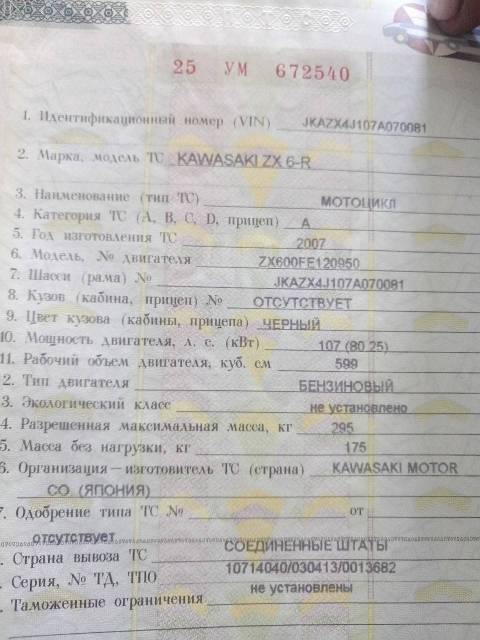 25 УМ 672540
1. Идентификационный номер (VIN) JKAZX4J107A070081
2. Марка, модель ТС KAWASAKI ZX 6-R
3. Наименование (тип ТС) МОТОЦИКЛ
4. Категория ТС (A, B, C, D, прицеп) А
5. Год изготовления ТС 2007
6. Модель, № двигателя ZX600FE120950
7. Шасси (рама) № JKAZX4J107A070081
8. Кузов (кабина, прицеп) № ОТСУТСТВУЕТ
9. Цвет кузова (кабины, прицепа) ЧЕРНЫЙ
10. Мощность двигателя, л. с. (кВт) 107 (80.25)
11. Рабочий объем двигателя, куб. см 599
2. Тип двигателя БЕНЗИНОВЫЙ
3. Экологический класс не установлено
4. Разрешенная максимальная масса, кг 295
5. Масса без нагрузки, кг 175
6. Организация—изготовитель ТС (страна) KAWASAKI MOTOR
CO. (ЯПОНИЯ)
7. Одобрение типа ТС № от
отсутствует
. Страна вывоза ТС СОЕДИНЕННЫЕ ШТАТЫ
. Серия, № ТД, ТПО 10714040/030413/0013682
. Таможенные ограничения не установлены